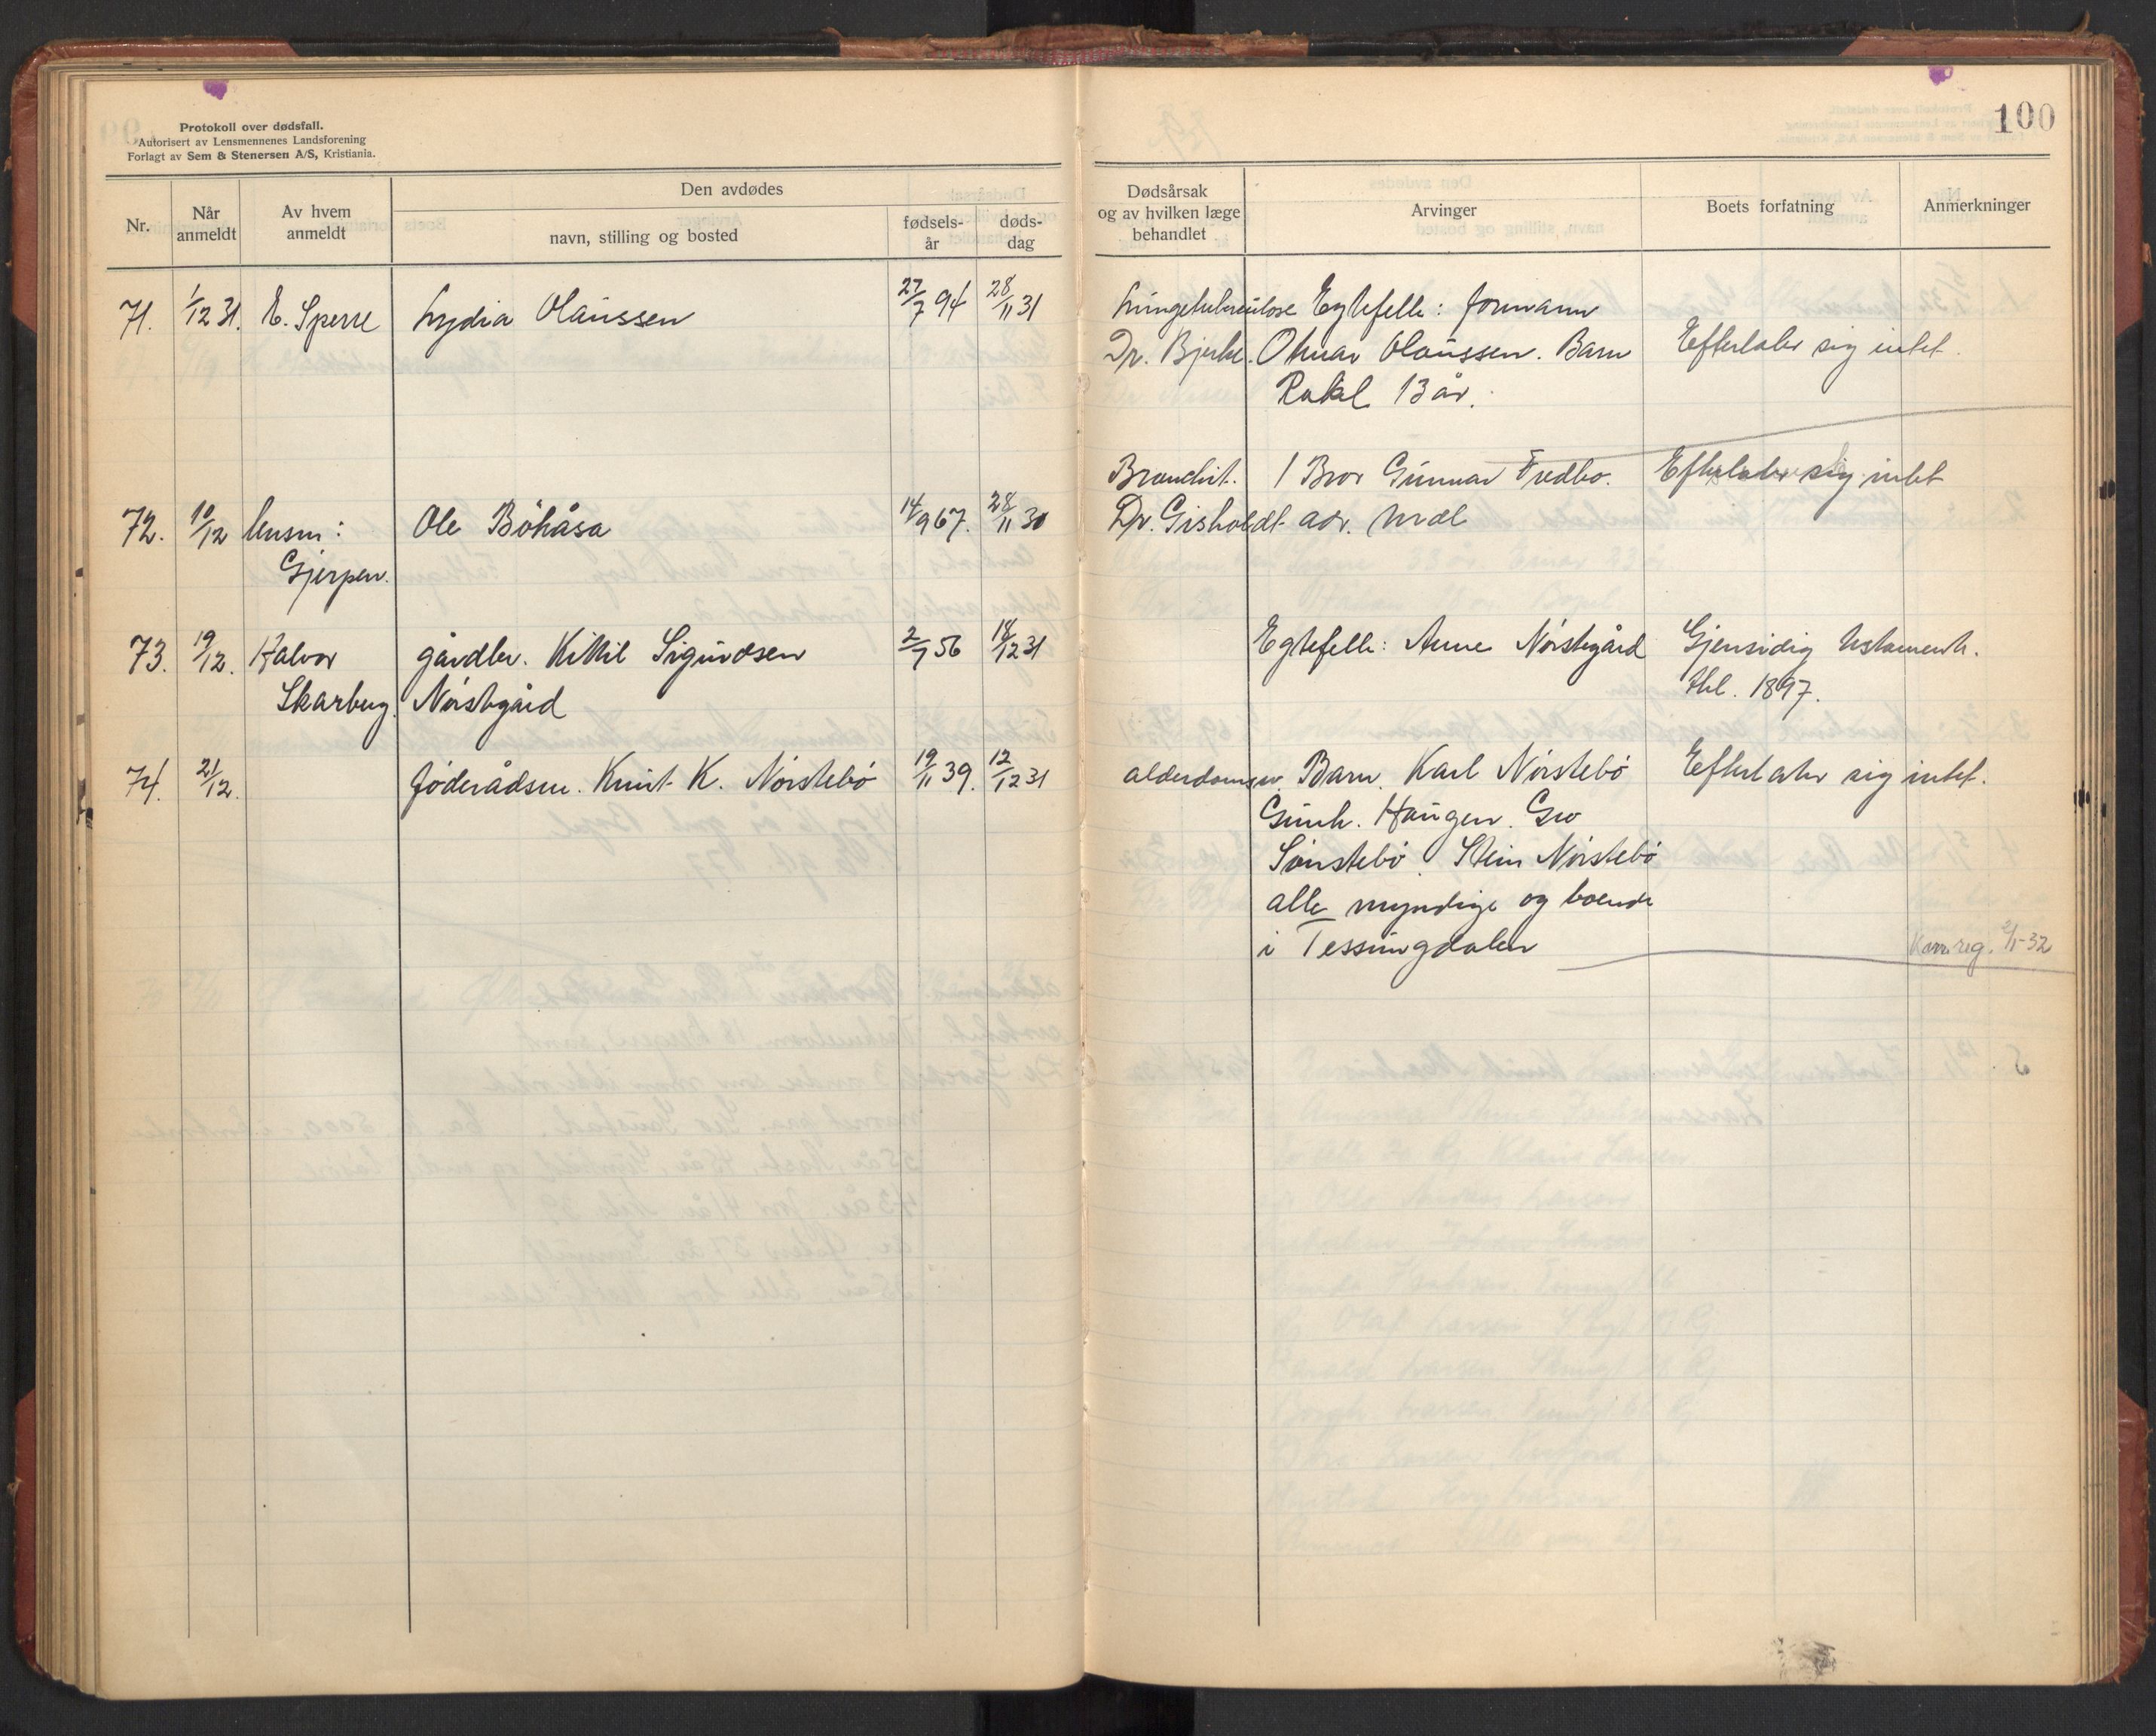 Protokoll over dødsfall.
Autorisert av Lensmennenes Landsforening
Forlagt av Sem & Stenersen A/S, Kristiania.
100
Nr.
Når anmeldt
Av hvem anmeldt
Den avdødes
navn, stilling og bosted
fødsels-år
døds-dag
Dødsårsak og av hvilken læge behandlet
Arvinger
Boets forfatning
Anmerkninger
71. 1/12 31. E. Sperre Lydia Olaussen 27/7 94 28/11 31 Lungetuberkulose Egtefelle: formann
Dr. Bjerke. Otmar Olaussen. Barn Efterlater sig intet.
Rakel 13 år.
Bronchit. 1 Bror Gunnar Fredbo. Efterlater sig intet
72. 10/12 lensm: Ole Böhåsa 14/9 67. 28/11 30 Dr. Gisholdt adr. Mæl
Gjerpen.
73. 19/12. Halvor gårdbr. Kittil Sigurdsen 2/7 56 18/12 31 Egtefelle: Anne Norstegård Gjensidig testamente.
Skarberg. Norstegård thl. 1897.
74. 21/12. föderådsm. Knut K. Norstebö 19/11 39. 12/12 31 alderdomssv. Barn. Karl Norstebö Efterlater sig intet.
Gunh. Haugen. Gro
Sönstebö. Stein Norstebö
alle myndige og boende
i Tessungdalen
reg. 2/1-32